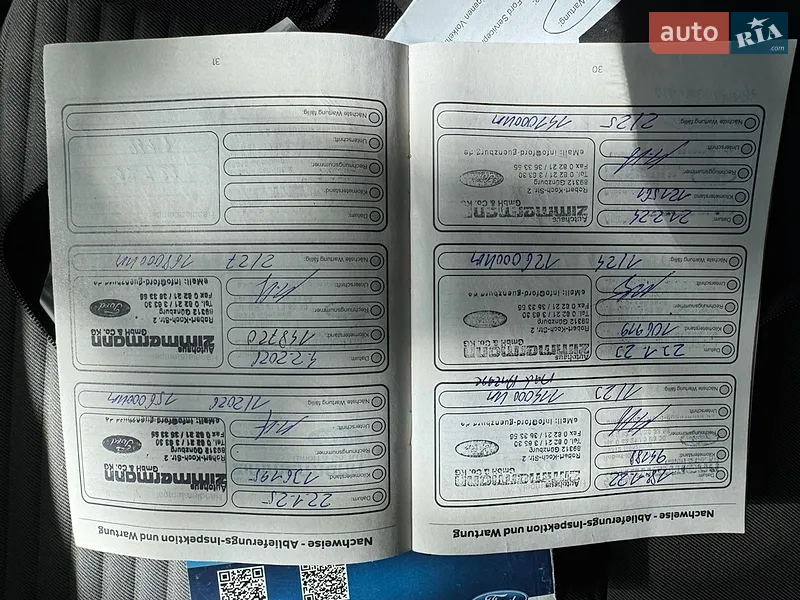 Nachweise - Ablieferungs-Inspektion und Wartung
Datum: 18.1.22
Kilometerstand: 94188
Rechnungsnummer:
Unterschrift:
Autohaus
Zimmermann
GmbH & Co. KG
Robert-Koch-Str. 2
89312 Günzburg
Tel. 0 82 21 / 3 63 30
Fax 0 82 21 / 36 33 65
eMail: info@ford-guenzburg.de
Nächste Wartung fällig: 1/23 114000 km
Datum: 23.1.23
Kilometerstand: 106919
Rechnungsnummer:
Unterschrift:
Autohaus
Zimmermann
GmbH & Co. KG
Robert-Koch-Str. 2
89312 Günzburg
Tel. 0 82 21 / 3 63 30
Fax 0 82 21 / 36 33 65
eMail: info@ford-guenzburg.de
Nächste Wartung fällig: 1/24 126000 km
Datum: 21.2.24
Kilometerstand: 121561
Rechnungsnummer:
Unterschrift:
Autohaus
Zimmermann
GmbH & Co. KG
Robert-Koch-Str. 2
89312 Günzburg
Tel. 0 82 21 / 3 63 30
Fax 0 82 21 / 36 33 65
eMail: info@ford-guenzburg.de
Nächste Wartung fällig: 2/25 141000 km
30
Nachweise - Ablieferungs-Inspektion und Wartung
Datum: 22.1.25
Kilometerstand: 136195
Rechnungsnummer:
Unterschrift:
Autohaus
Zimmermann
GmbH & Co. KG
Robert-Koch-Str. 2
89312 Günzburg
Tel. 0 82 21 / 3 63 30
Fax 0 82 21 / 36 33 65
eMail: info@ford-guenzburg.de
Ford
Nächste Wartung fällig: 1/2026 156000 km
Datum: 4.2.2026
Kilometerstand: 148720
Rechnungsnummer:
Unterschrift:
Autohaus
Zimmermann
GmbH & Co. KG
Robert-Koch-Str. 2
89312 Günzburg
Tel. 0 82 21 / 3 63 30
Fax 0 82 21 / 36 33 65
eMail: info@ford-guenzburg.de
Ford
Nächste Wartung fällig: 2/27 168000 km
Datum:
Kilometerstand:
Rechnungsnummer:
Unterschrift:
Nächste Wartung fällig:
31
Wartung:
auto RIA
.com